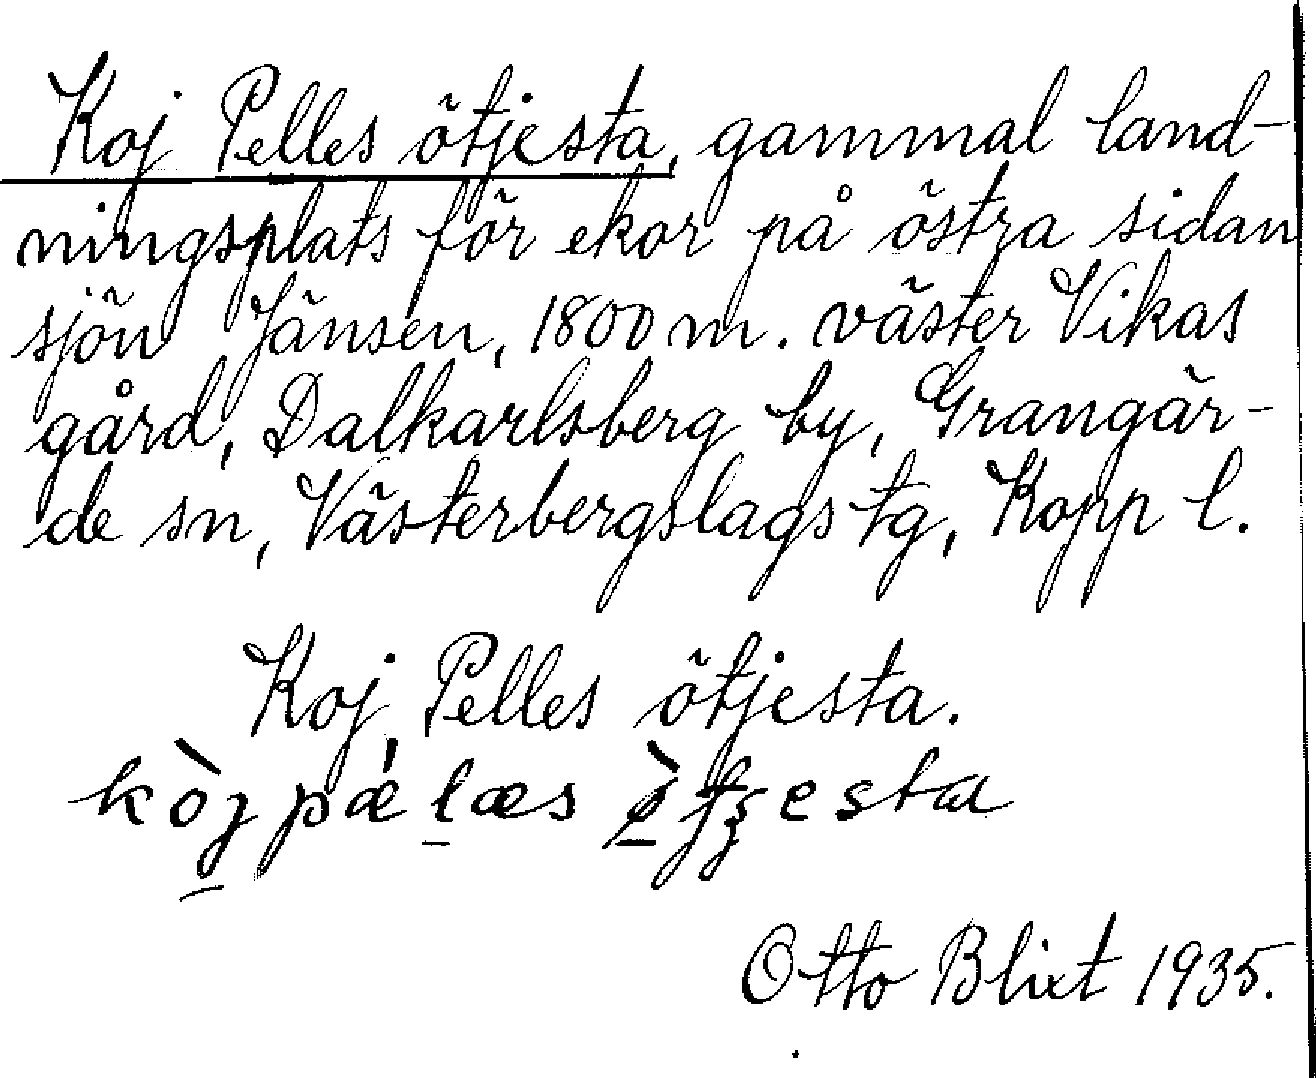 Koj Pelles ötjesta, gammal land-
ningsplats för ekor på östra sidan
sjön Jänsen, 1800 m. väster Vikas
gård, Dalkarlsberg by, Grangär-
de sn, Västerbergslags tg, Kopp l.
Koj Pelles ötjesta.
Otto Blixt 1935.